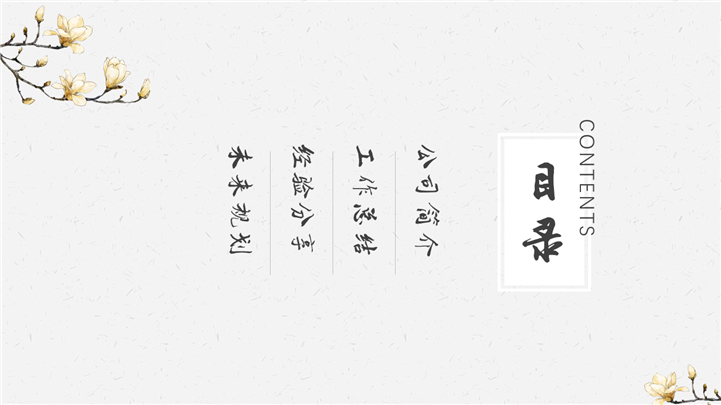 目录
CONTENTS
公司简介
工作总结
经验分享
未来规划